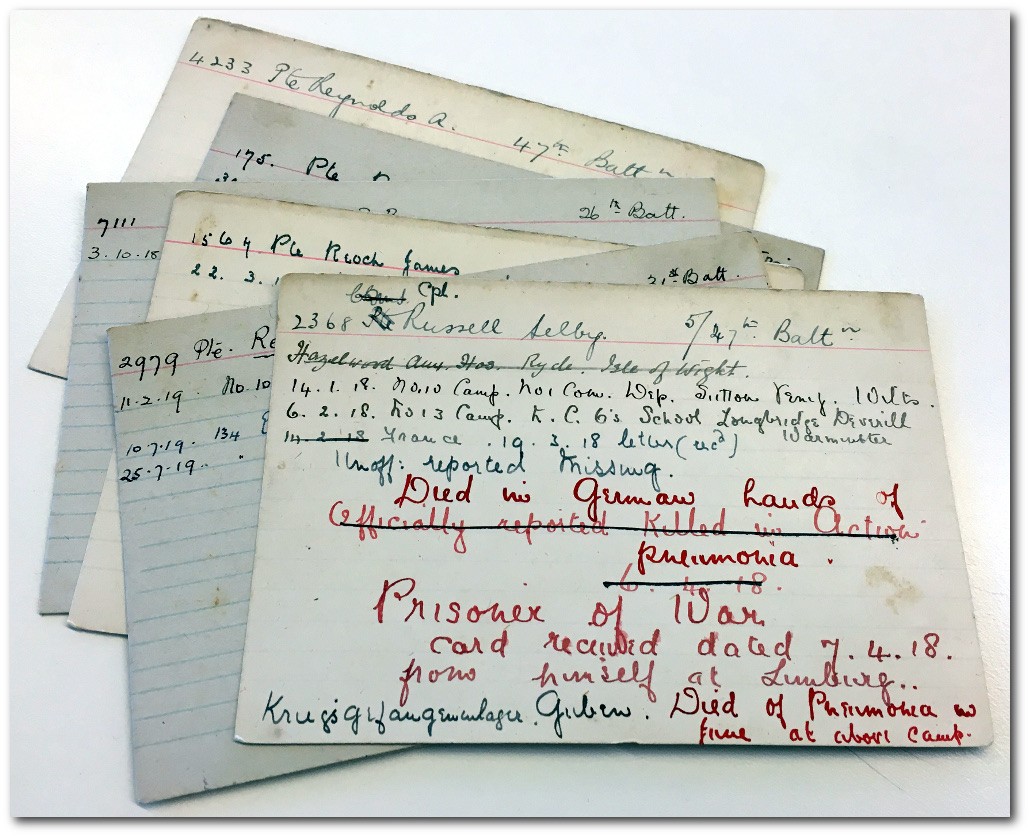 4233 Pte Reynolds A. 47th Battn
175. Pte
26th Batt.
7111
3.10.18
1564 Pte Reoch James
22. 3. 1
21st Batt
2979 Pte. Re
11.2.19 No. 10
10.7.19. 134
25.7.19.
Cpl.
2368 Pte Russell Selby. 5/47th Battn
Hazelwood Aux. Hos. Ryde. Isle of Wight.
14.1.18. No.10 Camp. No1 Com. Dep. Sutton Veny. Wilts.
6.2.18. No 13 Camp. K.C. 6's School Longbridge Deverill
Warminster
14.2.18 France. 19.3.18 letter
Unoff: reported Missing.
Died in German hands of
Officially reported Killed in Action
pneumonia.
6.4.18.
Prisoner of War
card received dated 7.4.18.
from himself at Limburg..
Kriegsgefangenenlager. Guben. Died of Pneumonia in
June at above camp.